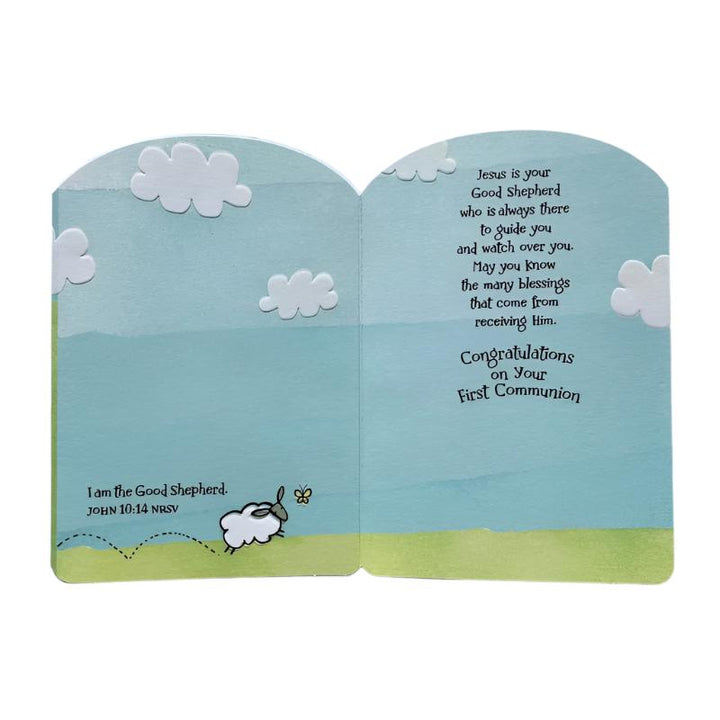 I am the Good Shepherd.
JOHN 10:14 NRSV
Jesus is your
Good Shepherd
who is always there
to guide you
and watch over you.
May you know
the many blessings
that come from
receiving Him.
Congratulations
on Your
First Communion